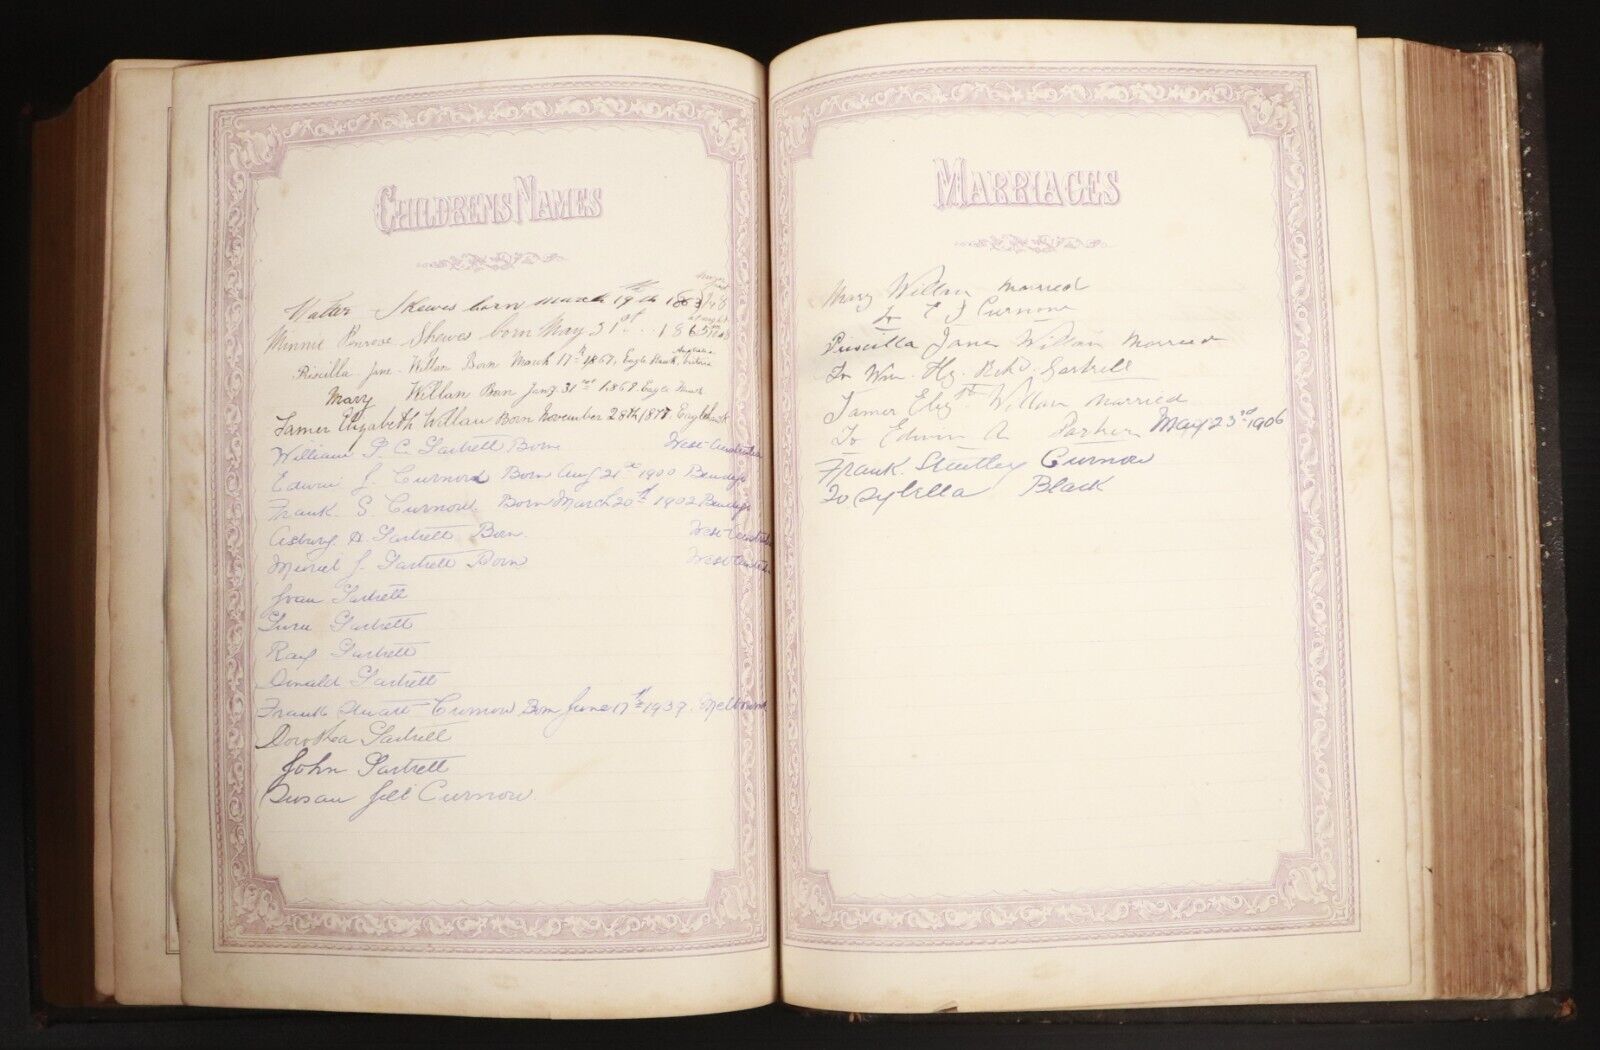 CHILDRENS NAMES
Walter Skewes born March 19th 1863
Minnie Penrose Skewes born May 31st 1865
Priscilla Jane Willan Born March 17th 1867, Eagle Hawk Victoria Australia
Mary Willan Born Jany 31st 1869 Eagle Hawk
Tamer Elizabeth Willan Born November 28th 1877 Eaglehawk
William C. Gartrell Born West Australia
Edwin J. Curnow Born Aug 21st 1900 Bendigo
Frank S. Curnow. Born March 20th 1902 Bendigo
Asbury A Gartrell Born West Australia
Muriel J. Gartrell Born West Australia
Ivan Gartrell
Gartrell
Ray Gartrell
Donald Gartrell
Frank Stuart Curnow Born June 17th 1939. Melbourne
Dorothea Gartrell
John Gartrell
Susan Jill Curnow
MARRIAGES
Mary Willan Married
To E J Curnow
Priscilla Jane Willan Married
To Wm. Hy. Richd. Gartrell
Tamer Elizth Willan Married
To Edwin A Parker May 23rd 1906
Frank Curnow
To Sybella Black